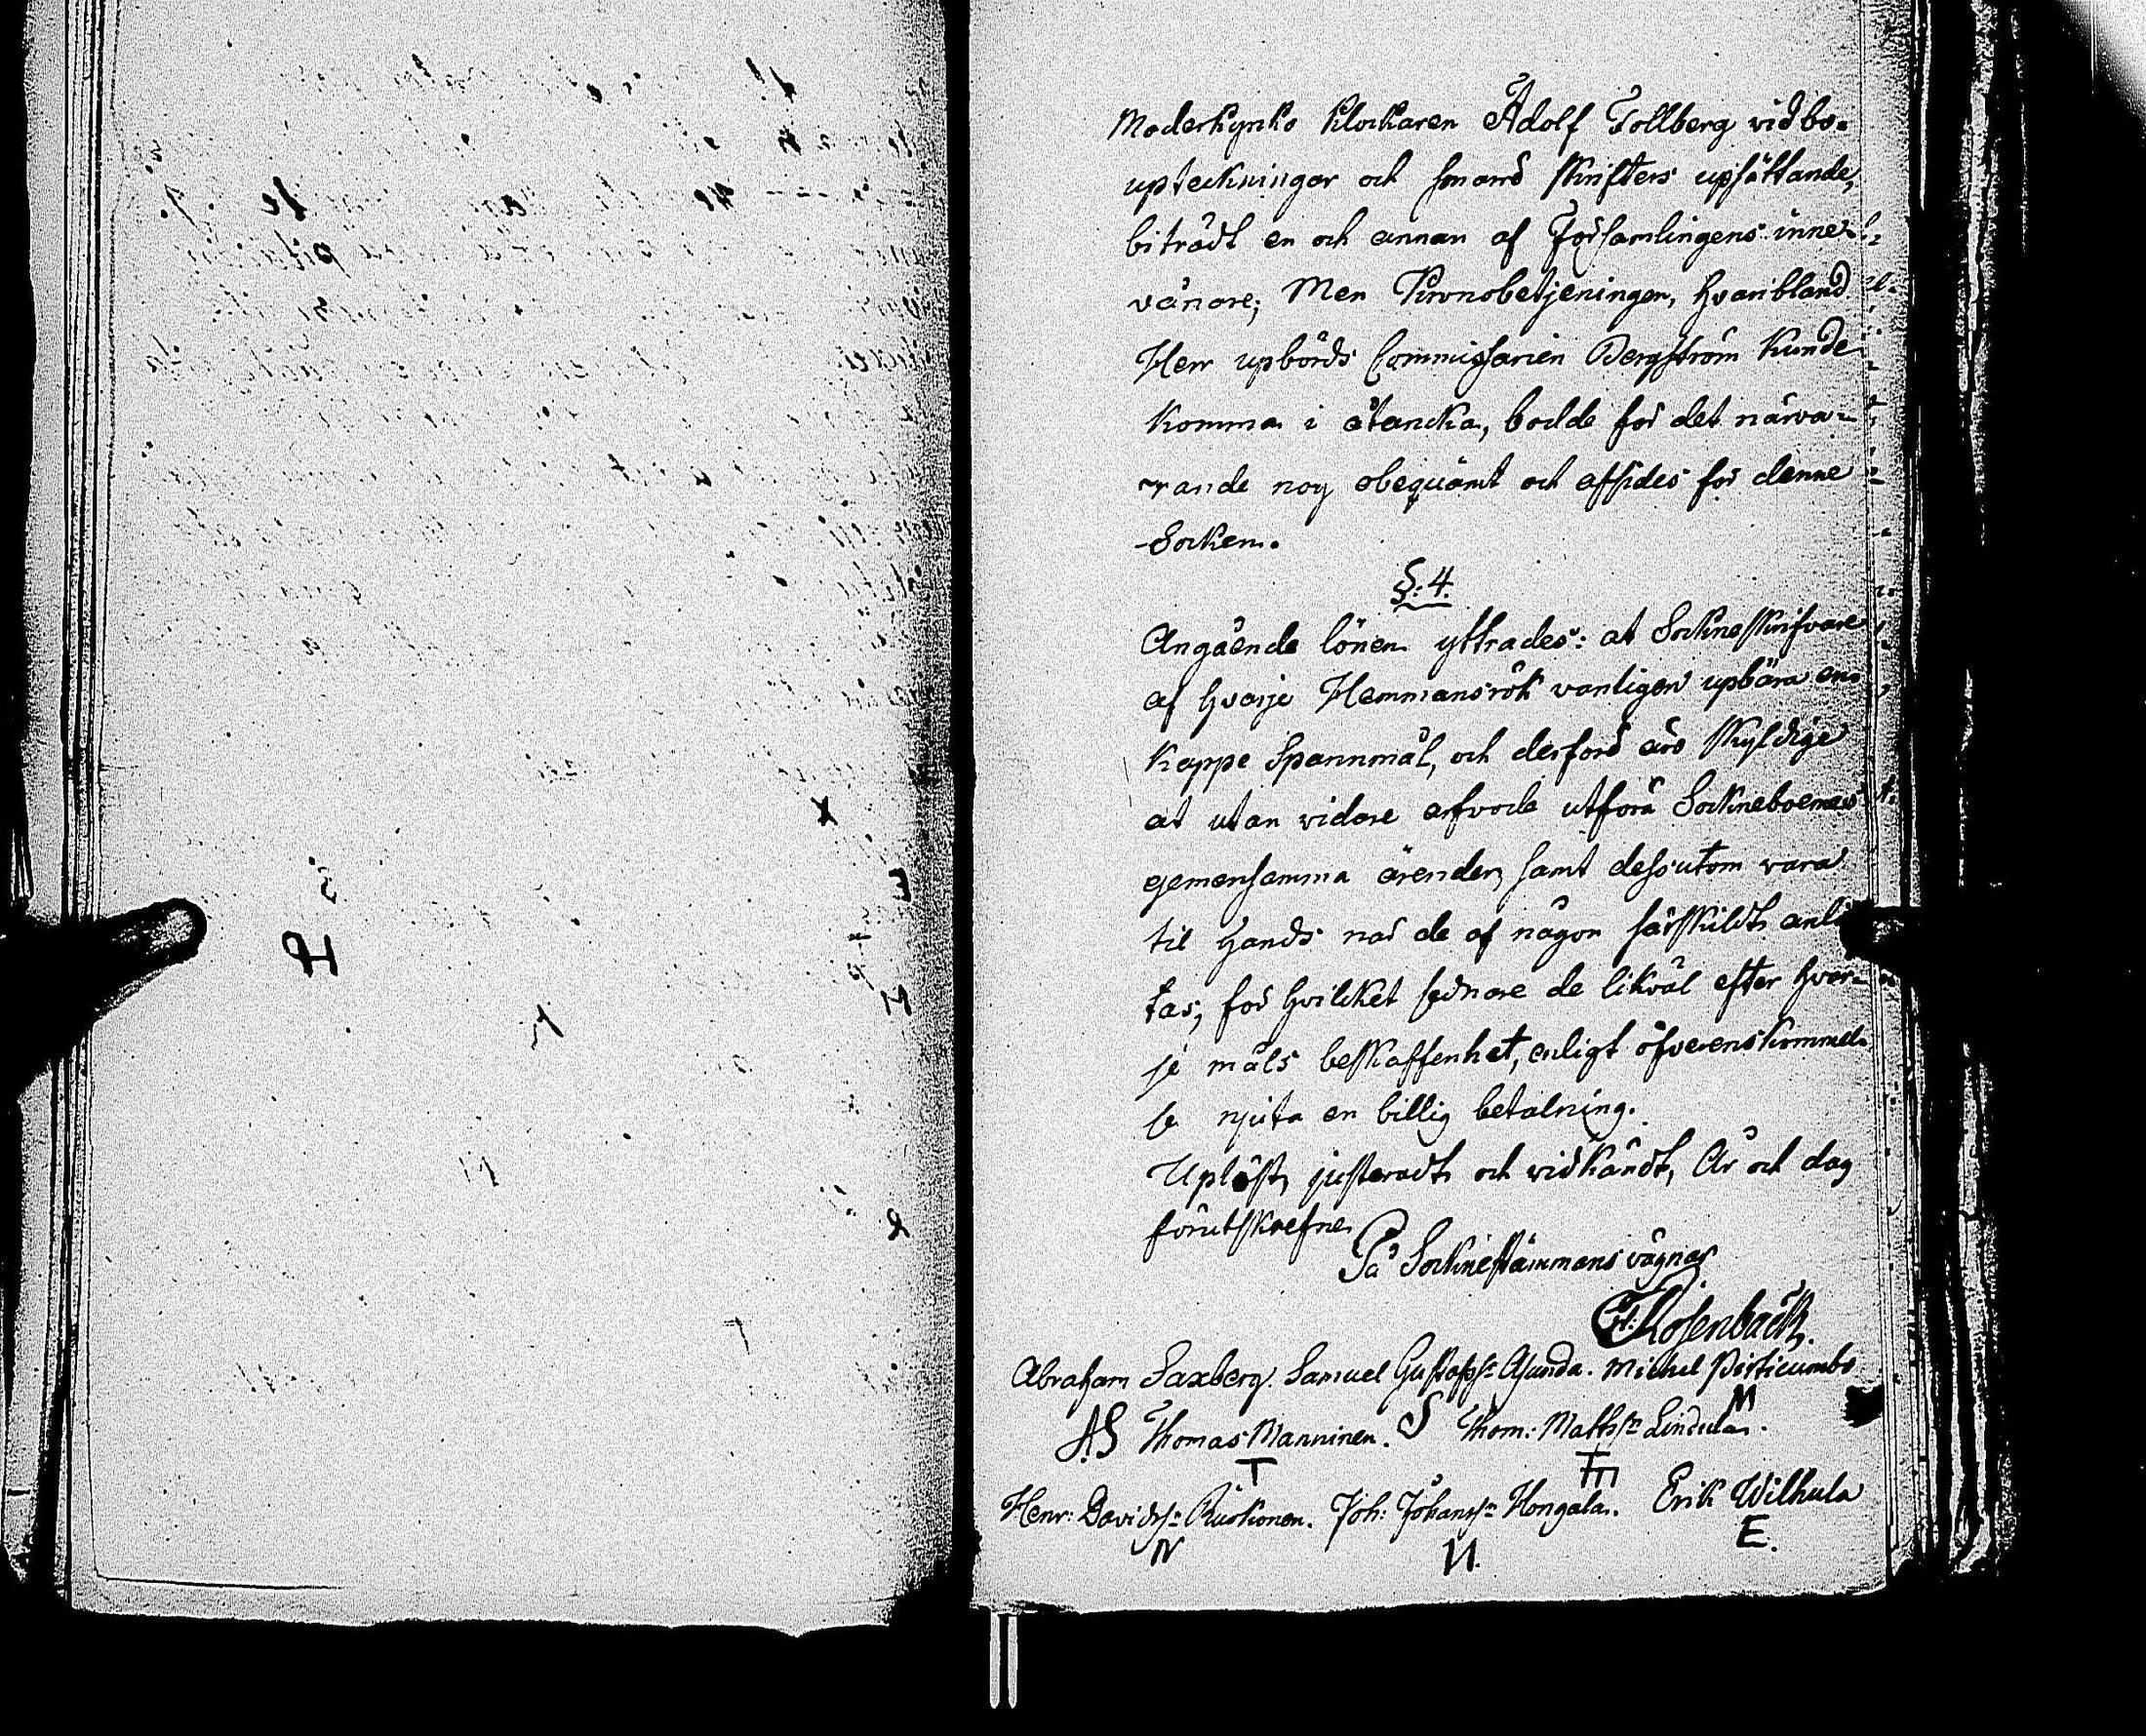 Moderkyrko Klockaren Adolf Tollberg vid bo-
upteckningar och smärre skrifters upsättande,
biträdt en och annan af Församlingens inne-
vånare; Men Kronobetjeningen, hvaribland
Herr upbörds Commissarien Bergström kunde
komma i åtancka, bodde för det närva-
rande nog obequämt och afsides för denne
Socken.
§: 4.
Angående lönen yttrades: at Sockneskrifvare
af hvarje Hemmansrök vanligen upbära en
Kappe Spannmål, och derföre äro skyldige
at utan vidare arfvode utföra Sockneboernes
gemensamma ärender, samt dessutom vara
til hands när de af någon särskildt anli
tas, för hvilket sednare de likväl efter hvar-
je måls beskaffenhet, enligt öfverenskommel-
se njuta en billig betalning.
Upläst, justeradt och vidkändt, År och dag
förutskrefne
På Socknestämmans vägnar
Rosenback.
Abraham Saxberg. Samuel Gustafss: Ajunda. Michel
M
AS Thomas Manninen. S Thom: Matthss:n
T
Henr: Davidss:n Joh: Johanss:n Hongala. Erik Wilhula
E.